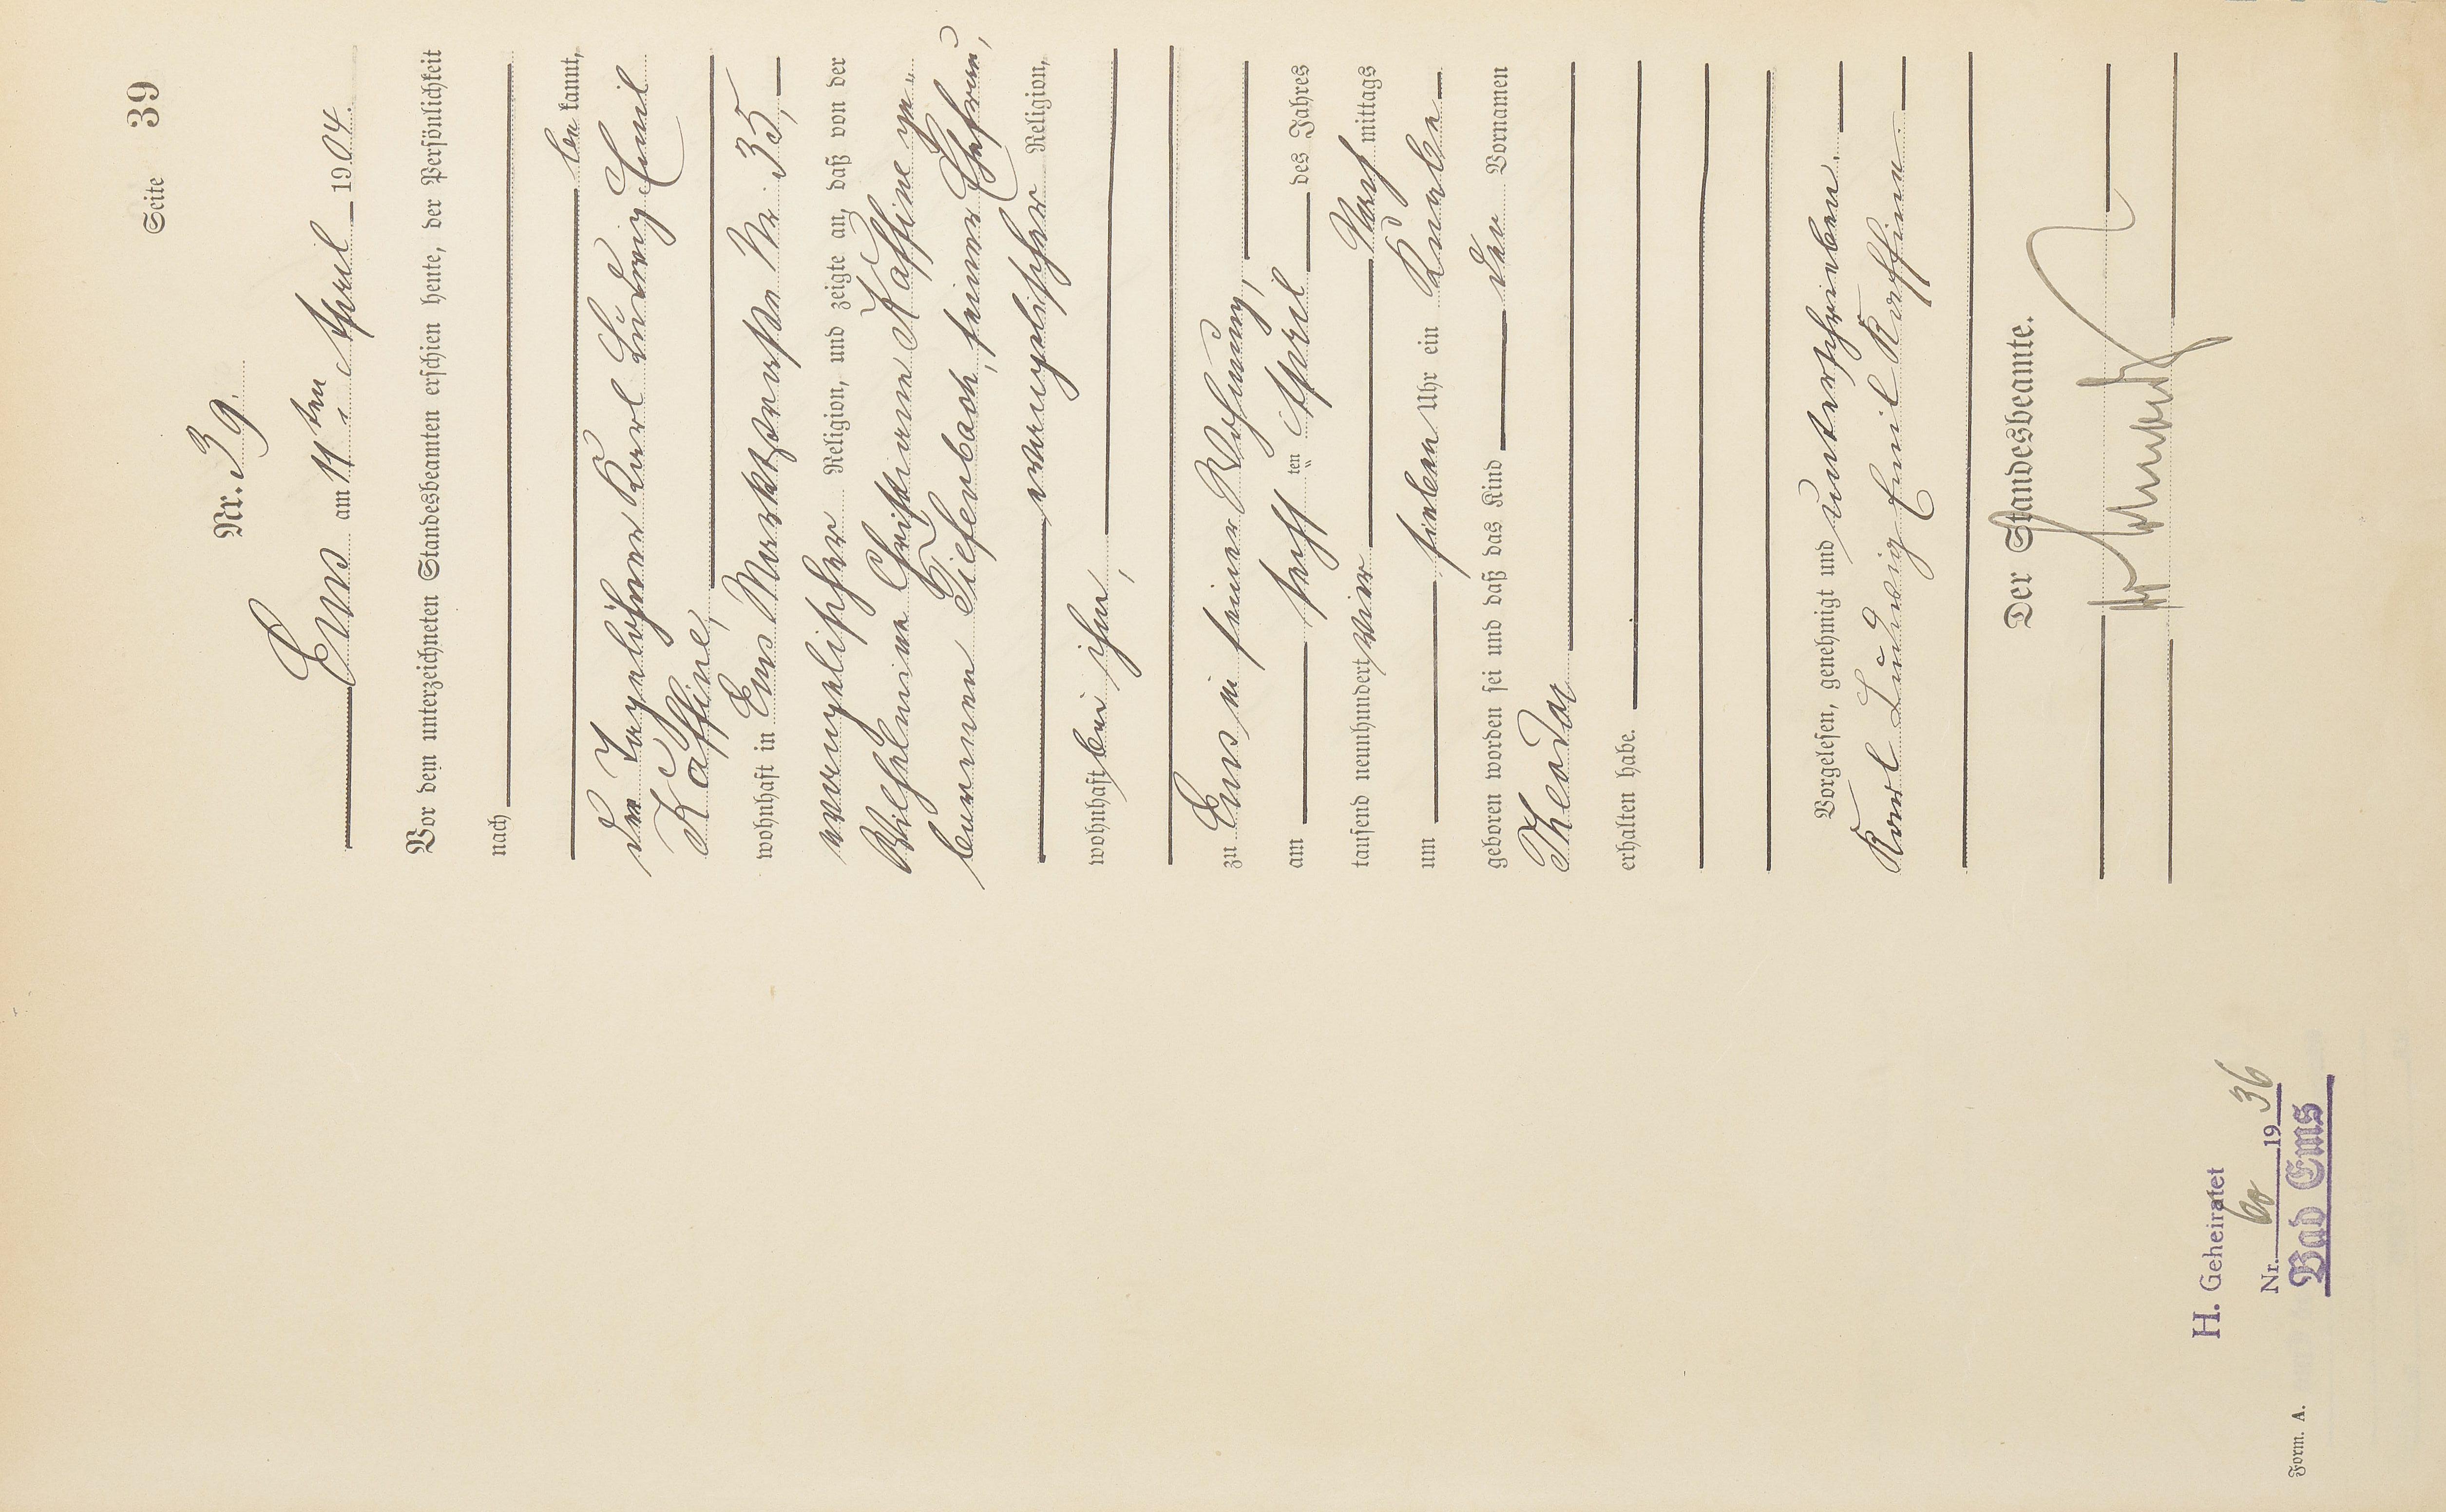 Seite 39
Nr. 39.
Ems am 11ten April 1904.
Vor dem unterzeichneten Standesbeamten erschien heute, der Persönlichkeit
nach
be kannt,
der Tagelöhner Karl Ludwig Emil
Kaffine,
wohnhaft in Ems Marktstraße Nr 35,
evangelischer Religion, und zeigte an, daß von der
Wilhelmine Christiane Kaffine ge„
borenen Tiefenbach, seiner Ehefrau,
evangelischer Religion,
wohnhaft bei ihm,
zu Ems in seiner Wohnung,
am sechs ten April des Jahres
tausend neunhundert vier Nach mittags
um sieben Uhr ein Knabe
geboren worden sei und daß das Kind den Vornamen
Theodor
erhalten habe.
Vorgelesen, genehmigt und unterschrieben.
Karl Ludwig Emil Kaffine.
Der Standesbeamte.
H. Geheiratet
Nr. 60 1936
Bad Ems
Form. A.